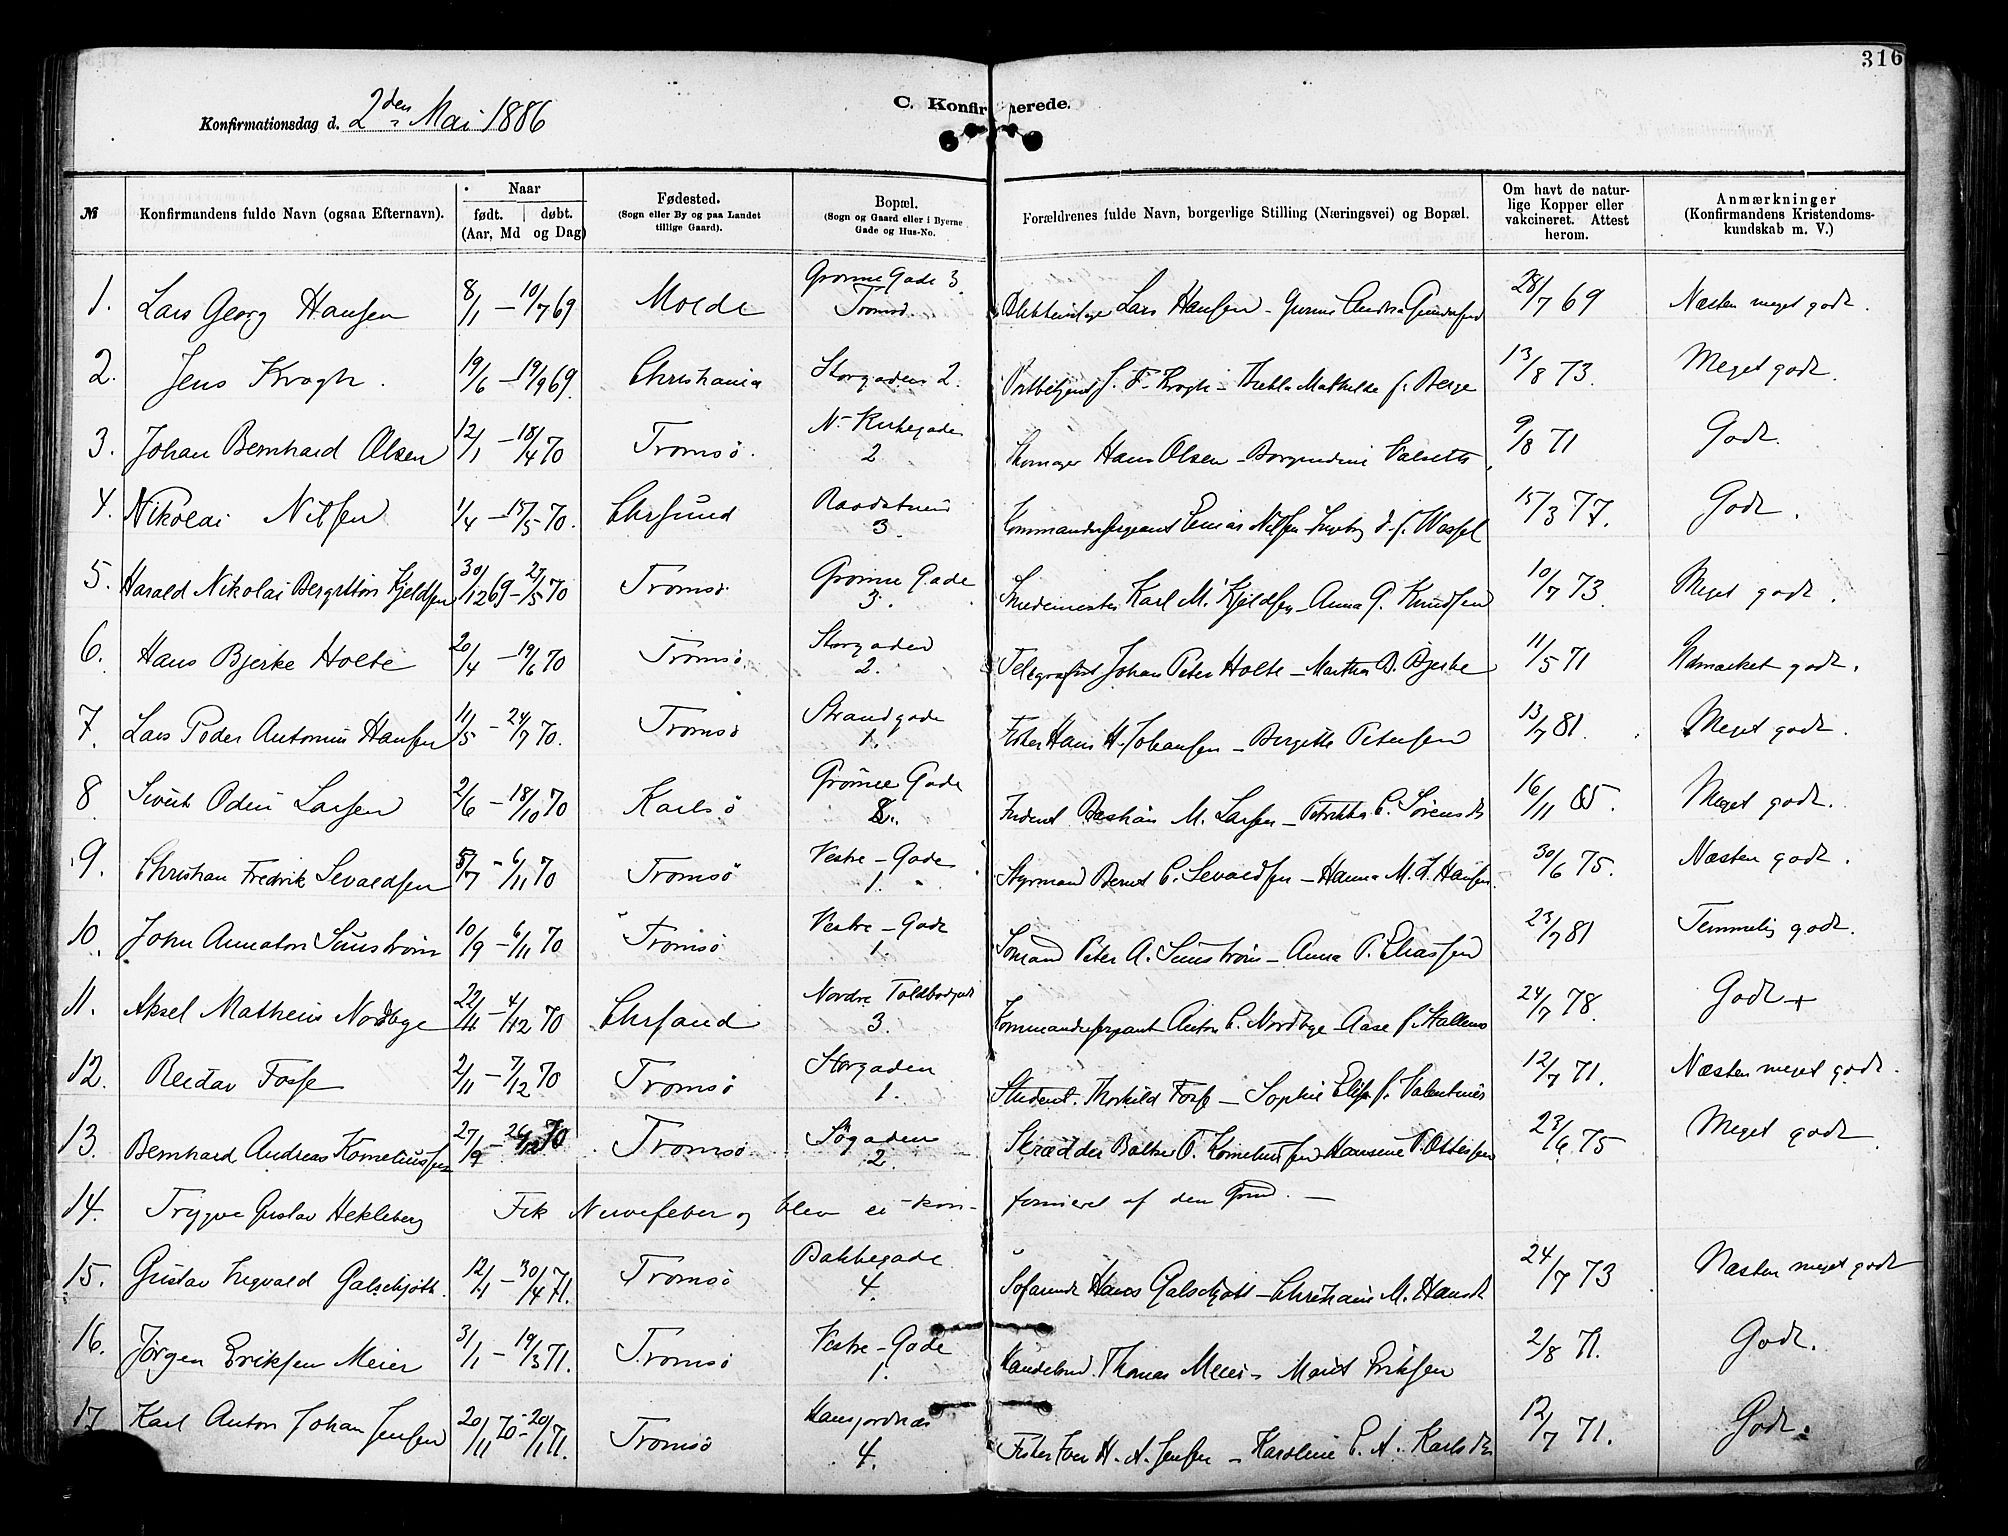 316
C. Konfirmerede.
Konfirmationsdag d. 2den Mai 1886
№ Konfirmandens fulde Navn (ogsaa Efternavn). Naar født. døbt. (Aar, Md og Dag) Fødested. (Sogn eller By og paa Landet tillige Gaard). Bopæl. (Sogn og Gaard eller i Byerne Gade og Hus-No. Forældrenes fulde Navn, borgerlige Stilling (Næringsvei) og Bopæl. Om havt de naturlige Kopper eller vakcineret. Attest herom. Anmærkninger (Konfirmandens Kristendomskundskab m. V.)
1. Lars Georg Hansen 8/1 – 10/7 69 Molde Grønne Gade 3. Tromsø Lars Hansen – 28/7 69 Næsten meget godt.
2. Jens Krogh. 19/6 – 19/9 69. Christiania Storgaden 2. F. Krogh – Mathilde f. Berge 13/8 73. Meget godt.
3. Johan Bernhard Olsen 12/1 – 18/4 70 Tromsø. N. Kirkegade 2 Skomager Hans Olsen – 9/8 71 Godt.
4. Nikolai Nilsen 1/4 – 15/5 70. Chrsund 3. Kommandersergeant Nilsen – f. Wessel 15/3 77. Godt.
5. Harald Nikolai Kjeldsen 30/12 69 – 27/5 70 Tromsø Grønne Gade 3. Smedemester Karl M. Kjeldsen – Anna G. Knudsen 10/7 73. Meget godt.
6. Hans Bjerke Holte 20/4 – 19/6 70 Tromsø Storgaden 2. Telegrafist Johan Peter Holte – Martha B. Bjerke 11/5 71 Udmærket godt.
7. Lars Peder Antonius Hansen 11/5 – 24/7 70. Tromsø Strandgade 1. Fisker Hans H. Johansen – Bergitte Petersen 13/7 81. Meget godt.
8 Sivert Odin Larsen 2/6 – 18/10 70 Karlsø Grønne Gade Bastian M. Larsen – C. Sørensdt 16/11 85. Meget godt.
9. Christian Fredrik Sevaldsen 5/7 – 6/11 70 Tromsø Vestre – Gade 1. Styrmand Bernt C. Sevaldsen – Hanna M. L. Hansen. 30/6 75. Næsten godt.
10. John Annaton Sunström 10/9 – 6/11 70 Tromsø Vestre – Gade 1. Sømand Peter A. Sunström – Anna P. Eliassen 23/7 81 Temmelig godt.
11. Aksel Matheus Nordbye 22/11 – 4/12 70 Chrsand Nordre Toldbodgade 3. Kommandersergeant Anton C. Nordbye – Aase f. 24/7 78. Godt +
12. Reidar Fosse 2/11 – 7/12 70 Tromsø Storgaden 1. Student. Thorkild Fosse – Sophie Elise f. 12/7 71. Næsten meget godt.
13. Bernhard Andreas Korneliussen 27/9 – 26/12 70 Tromsø Søgaden 2. Skrædder Kornelius­sen Hansine P. Ottesen 23/6 75 Meget godt
14. Trygve Gustav Hekleberg Fik Nervefeber og blev ei kon-firmeret af den Grund. –
15. Gustav Ingvald Galschjøtt. 12/1 – 30/4 71. Tromsø Bakkegade 4. Hans Galschjøtt – Christiane M. Hansdt 24/7 73 Næsten meget godt
16. Jørgen Eriksen Meier 31/1 – 19/3 71. Tromsø Vestre – Gade 1. Thomas Meier – Marit Eriksen 2/8 71. Godt.
17 Karl Anton Johan Jensen 20/11 70 – 20/1 71. Tromsø Hansjordnæs 4. Fisker Iver H. A. Jensen – Karoline C. A. Karlsdtr 12/7 71. Godt.